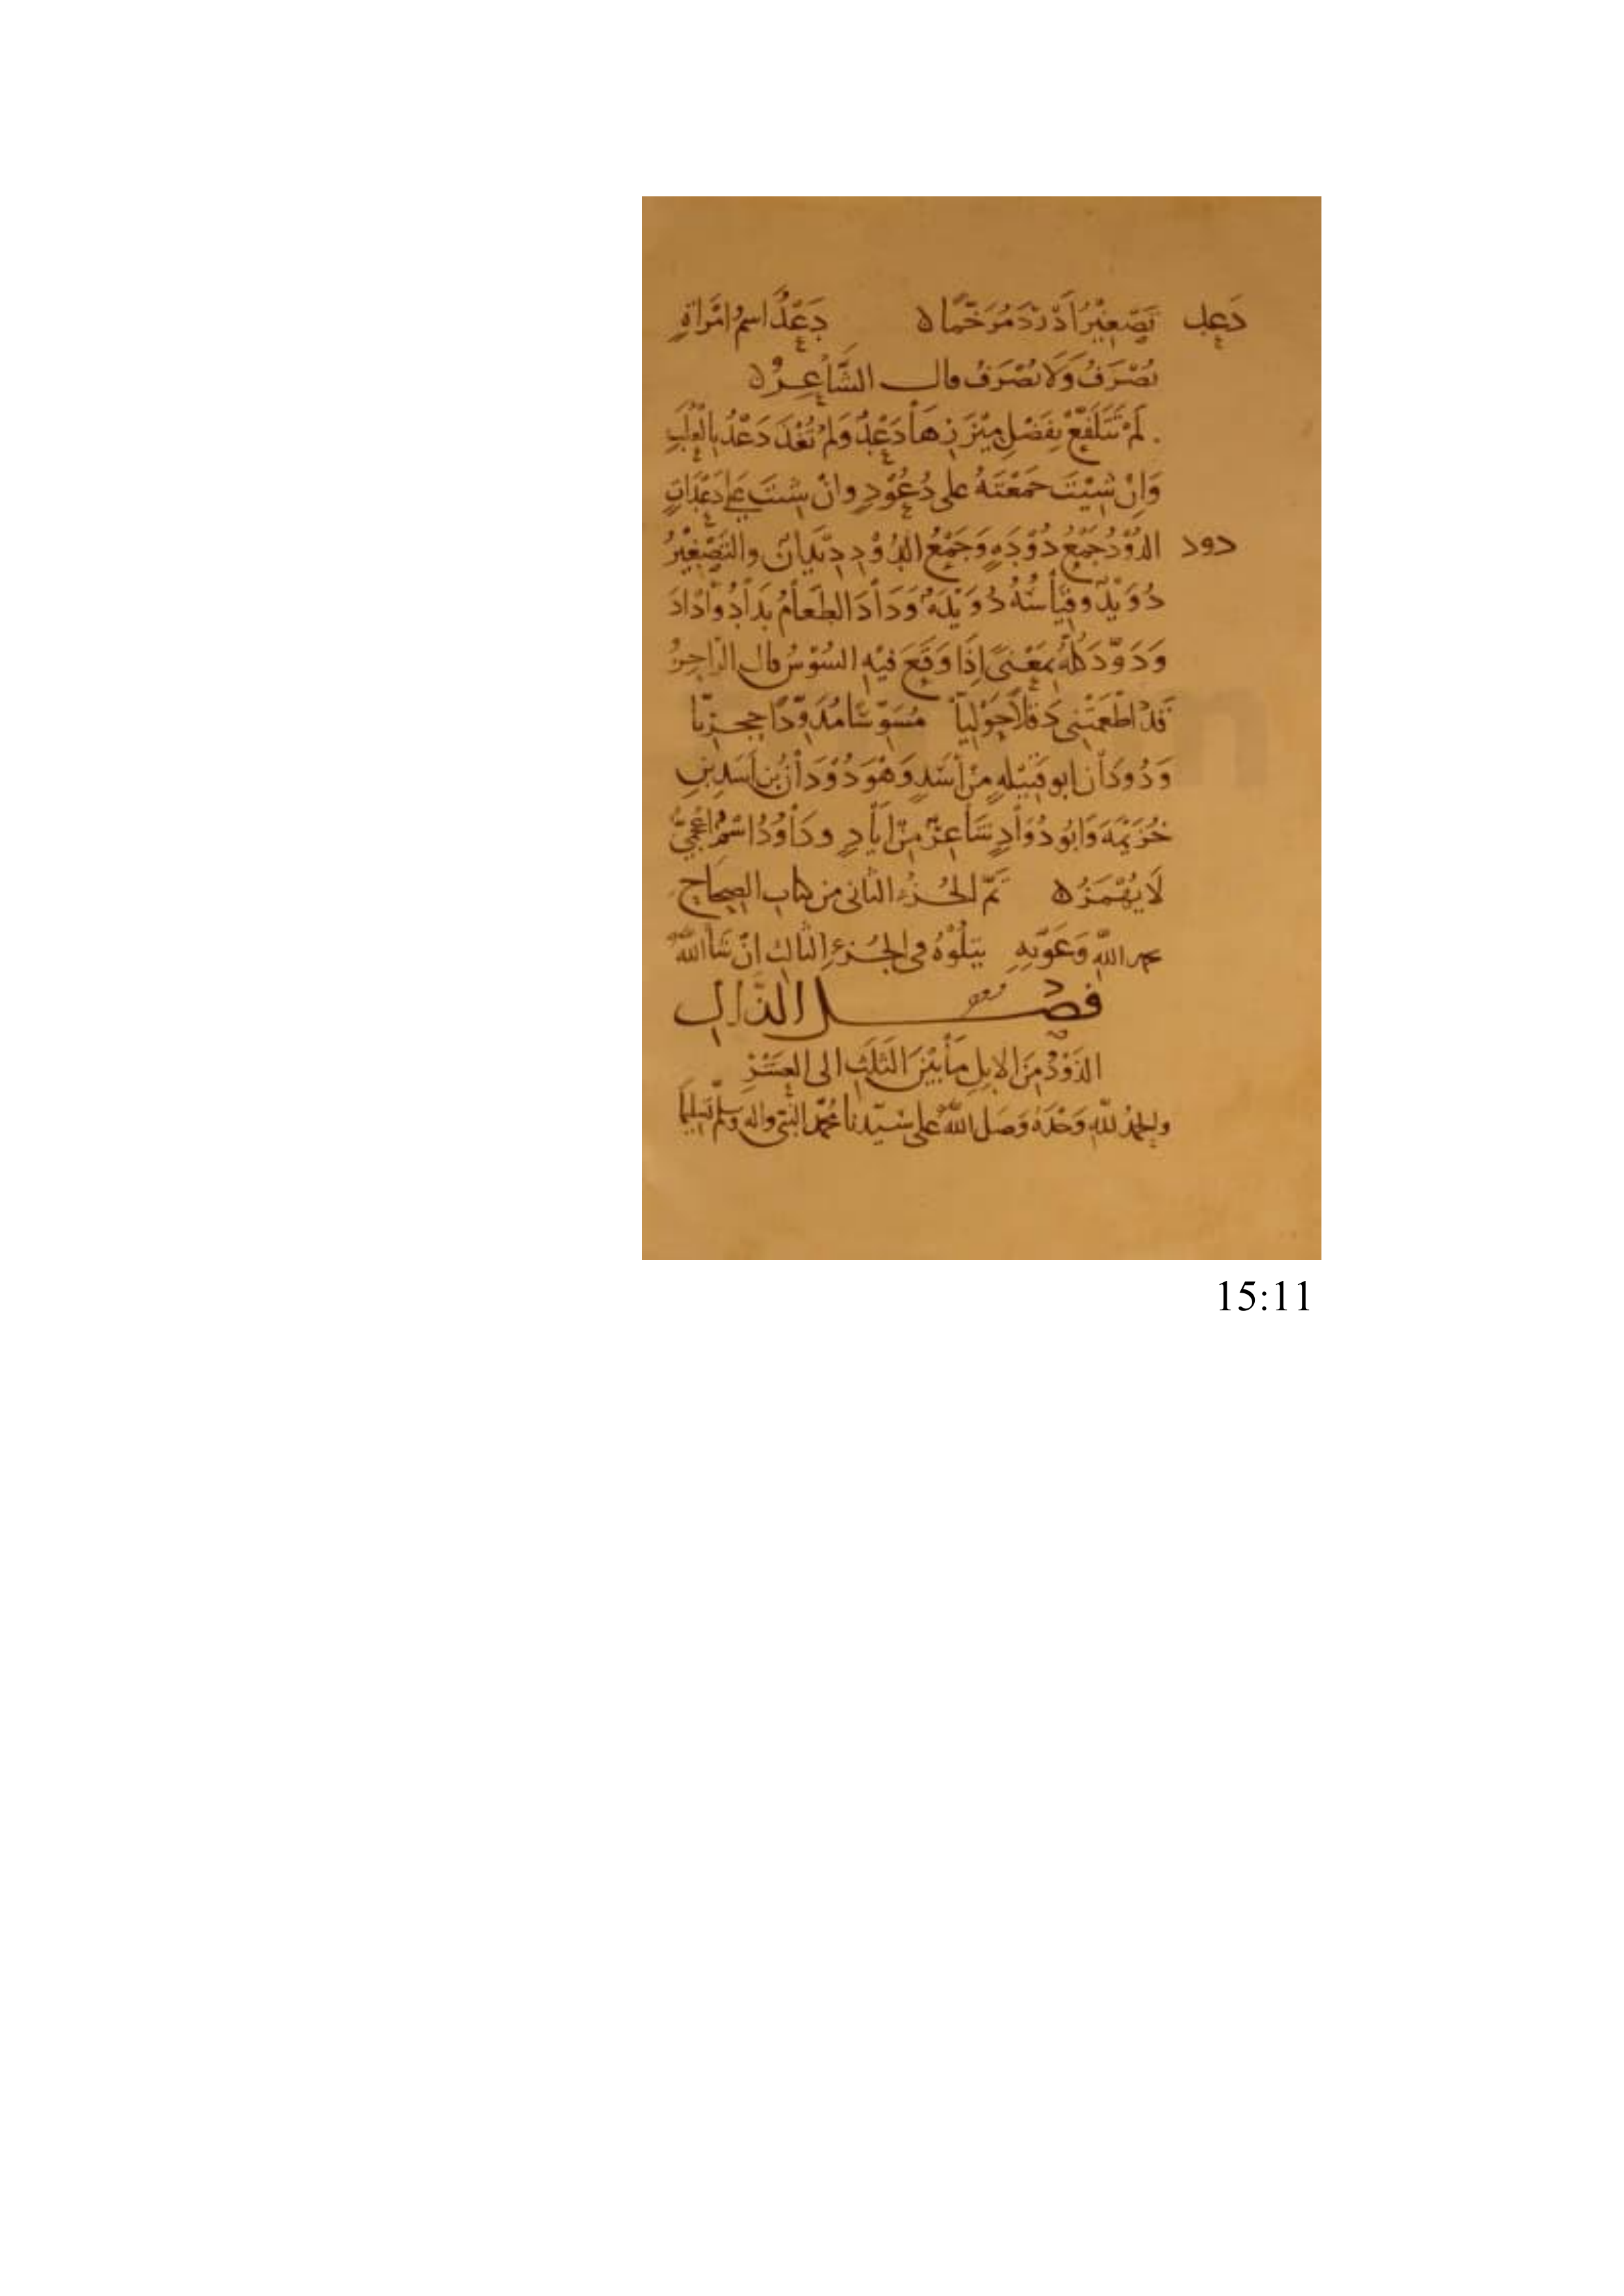 دَعد تَصْغِيْرُ اَدْرَدَ مُرَخَّمًا ه دَعْدُ اسمُ امْرَاةٍ
تُصْرَفُ وَلَا تُصْرَفُ قال الشَّاعِرُ ه
لَمْ تَتَلَفَّعْ بِفَضْلِ مِئْزَرِهَا دَعْدٌ وَلَمْ تُغْذَ دَعْدُ بِالْعُلَبِ
وَاِنْ شِيْتَ جَمَعْتَهُ على دُعُوْدٍ وانْ شِيتَ عَلى دَعَدَاتٍ
دود الدُّوْدُ جَمْعُ دُوْدَهٍ وَجَمْعُ الدُّوْدِ دِيْدَانٌ والتَّصْغِيْرُ
دُوَيْدٌ وقِيَاسُهُ دُوَيْدَهٌ وَدَادَ الطَعَامُ يَدَادُ وَادَادَ
وَدَوَّدَ كُلُّهُ بِمَعْنىً اِذَا وَقَعَ فيْهِ السُوْسُ قال الرَّاجِزُ
قَدْ اطْعَمَتْنِى دَقَلًا حَوْلِيَّا مُسَوِّسًا مُدَوِّدًا حجريَّا
وَدُودَان ابو قَبِيْلهٍ مِنْ اَسَدٍ وَهْوَ دُوْدَانُ بن اَسَدِ بنِ
خُزَيْمَهَ وَابُو دُوَادٍ شَاعِرٌ مِنْ اِيَادٍ ودَاوُدُ اسْمٌ اعْجَمِيٌّ
لَا يُهْمَزُ ه تَمَّ الجُزْءُ الثانى من كتاب الصِحَاحِ
بحمد اللهِ وَعَوْنِهِ يَتْلُوْهُ فى الجُزءِ الثالث انْ شَا اللهُ
فصــل الذَّال
الذَوْدُ مِنَ الابِلِ مَا بَيْنَ الثَلَثِ الى العَشْرِ
والحمدُ للهِ وَحْدَهُ وَصَلى اللهُ على سَيّدنا مُحَمَّد النَّبى واله وسلّم تسليمًا
15:11